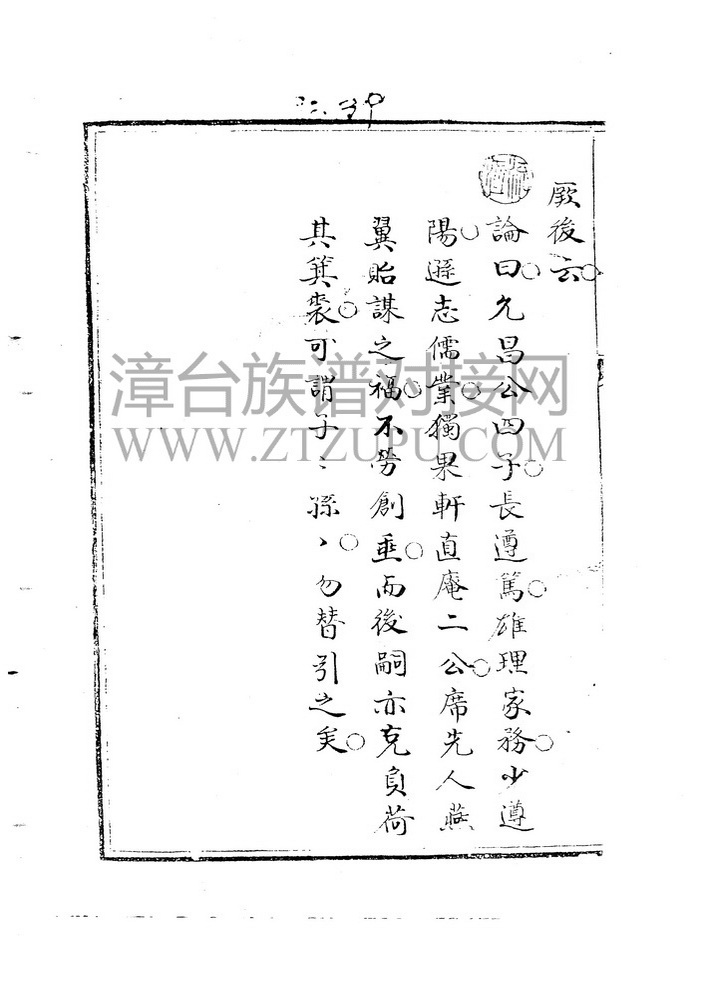 厥後云
論曰允昌公四子長遵篤雄理家務少遵
陽遜志儒業獨果軒直庵二公席先人燕
翼貽謀之福不勞創垂而後嗣亦克負荷
其箕裘可謂子〻孫〻勿替引之矣
漳台族谱对接网
WWW.ZTZUPU.COM